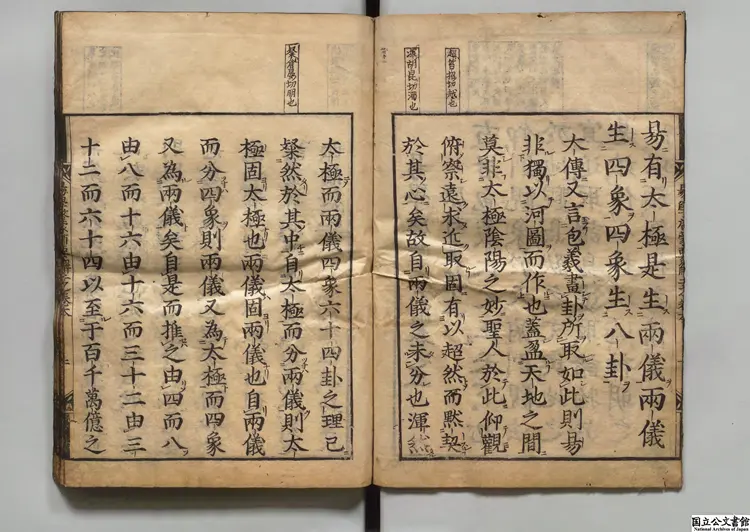 易有太極是生兩儀兩儀
生四象四象生八卦
大傳又言包羲畫卦所取如此則易
非獨以河圖而作也蓋盈天地之間
莫非太極陰陽之妙聖人於此仰觀
俯察遠求近取固有以超然而默契
於其心矣故自兩儀之未分也渾然
渾胡昆切濁也
太極而兩儀四象六十四卦之理已
粲然於其中自太極而分兩儀則太
極固太極也兩儀固兩儀也自兩儀
而分四象則兩儀又為太極而四象
又為兩儀矣自是而推之由四而八
由八而十六由十六而三十二由三
十二而六十四以至于百千萬億之
国立公文書館
National Archives of Japan